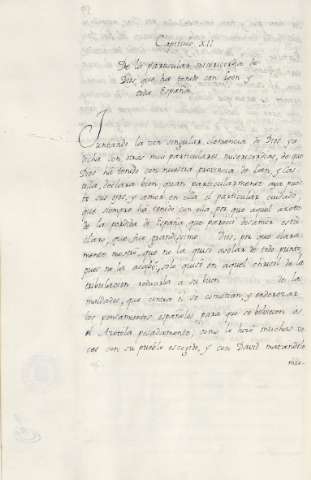 Capitulo XII
De la particular misericordia de
Dios, que ha tenido con Leon y
toda España
Juntando la tan singular clemencia de Dios ya
dicha con otras muy particulares misericordias, de que
Dios ha tenido con nuestra provincia de Leon, y Cas
tilla, declara bien quan particularmente aya pues
to sus ojos, y amor en ella el particular cuidado
que siempre ha tenido con ella, por que aquel azote
de la perdida de España, que parecio
claro, que fue grandisimo Dios, por que clara
mente mostró, que no la quiso asolar de todo punto,
pues no la acabó, solo quiso en aquel crisol de la
tribulacion reducirla a su bien de las
maldades, que contra el se cometian, y enderezar
los pensamientos españoles, para que se
el Azotola pesadamente, como lo hizo muchas ve
ces con su pueblo escogido, y con David matandole